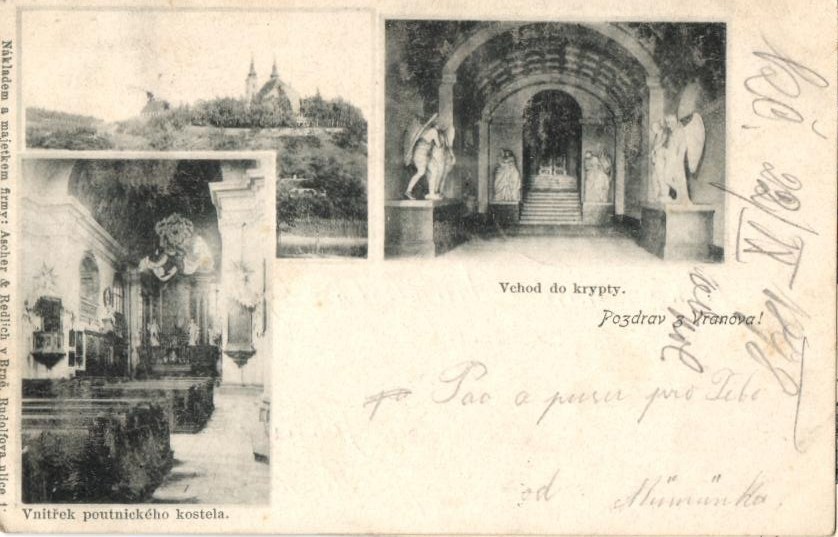 Nákladem a majetkem firmy: Ascher & Redlich v Brně. Rudolfova ulice 1.
Vchod do krypty.
Pozdrav z Vranova!
Vnitřek poutnického kostela.
Pac a pusu pro Tebe
od